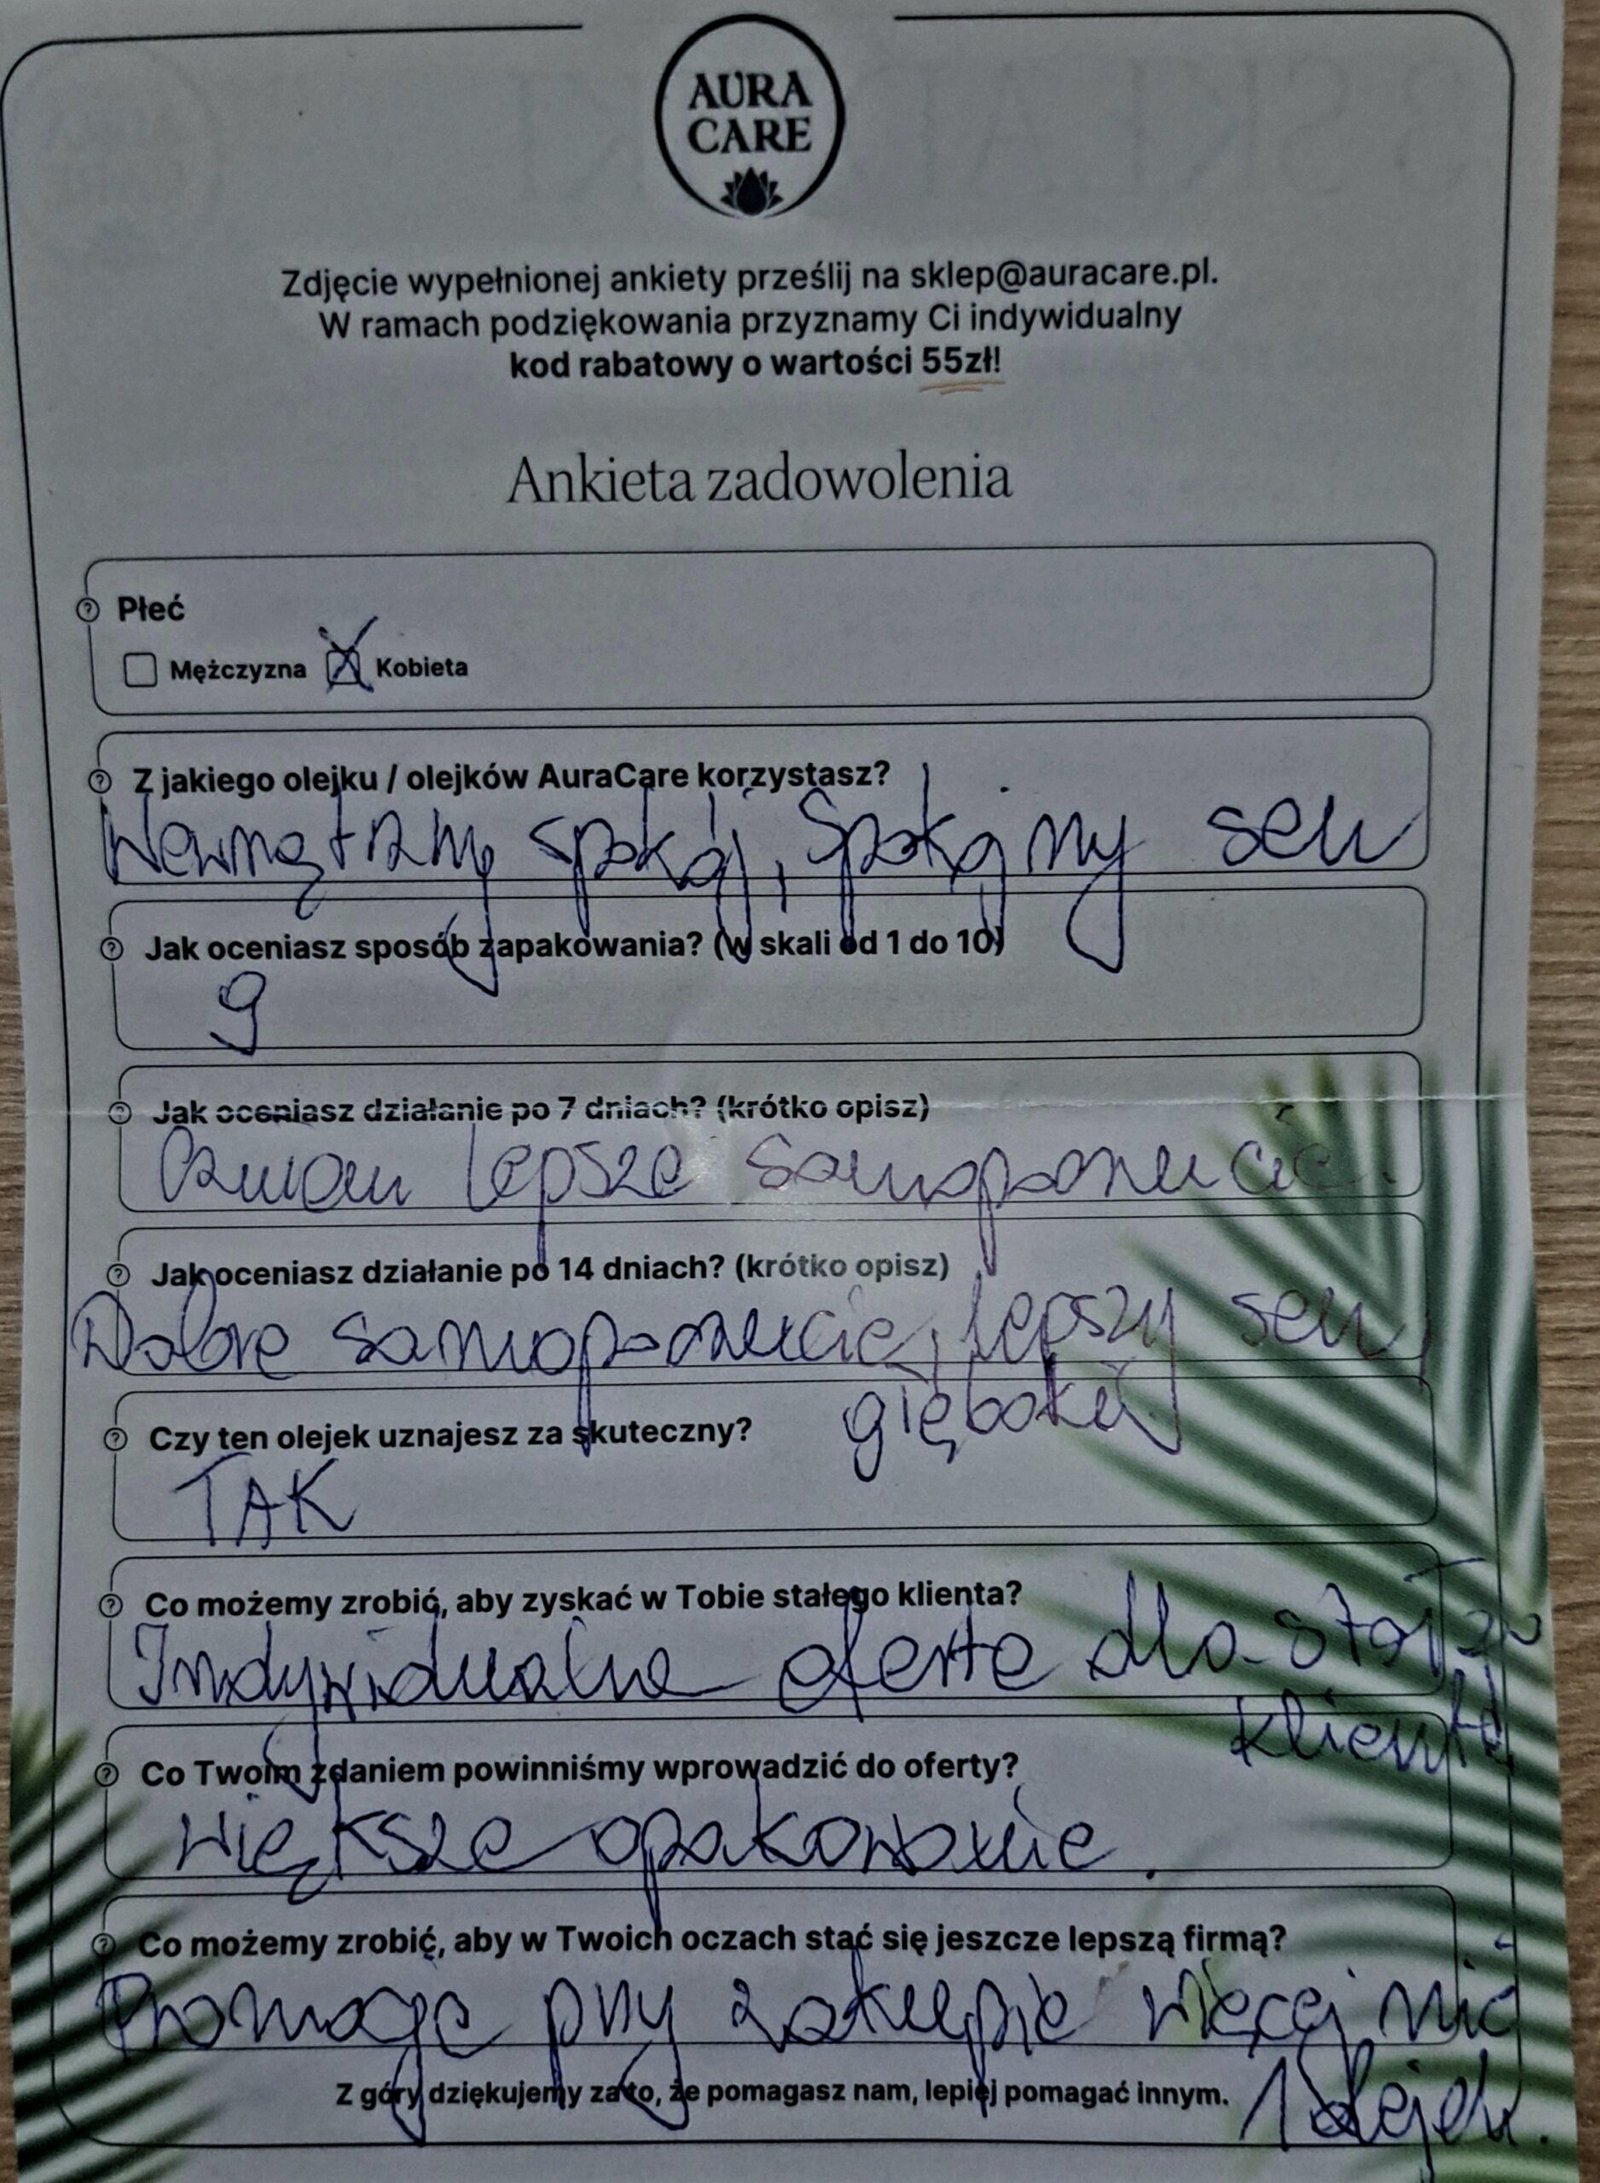 AURA
CARE
Zdjęcie wypełnionej ankiety prześlij na sklep@auracare.pl.
W ramach podziękowania przyznamy Ci indywidualny
kod rabatowy o wartości 55zł!
Ankieta zadowolenia
Płeć
Mężczyzna Kobieta
Z jakiego olejku / olejków AuraCare korzystasz?
Wewnętrzny spokój, Spokojny sen
Jak oceniasz sposób zapakowania? (w skali od 1 do 10)
9
Jak oceniasz działanie po 7 dniach? (krótko opisz)
lepsze samopoczucie.
Jak oceniasz działanie po 14 dniach? (krótko opisz)
Dobre samopoczucie, lepszy sen,
Czy ten olejek uznajesz za skuteczny?
TAK
Co możemy zrobić, aby zyskać w Tobie stałego klienta?
Indywidualne oferte dla
Co Twoim zdaniem powinniśmy wprowadzić do oferty?
większe opakowanie.
Co możemy zrobić, aby w Twoich oczach stać się jeszcze lepszą firmą?
Promocje przy zakupie więcej niż
Z góry dziękujemy za to, że pomagasz nam, lepiej pomagać innym.
1 olejek.